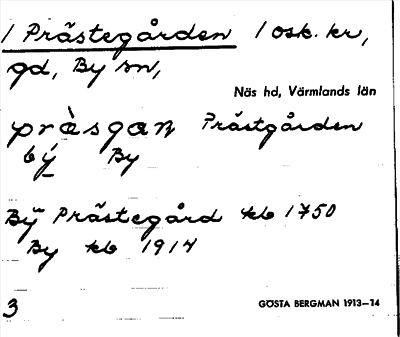 / Prästegården / osk. kr,
gd, By sn,
Näs hd, Värmlands län
pràsgan Prästgården
bý By
Bÿ Prästegård kb 1750
By kb 1914
3
GÖSTA BERGMAN 1913–14